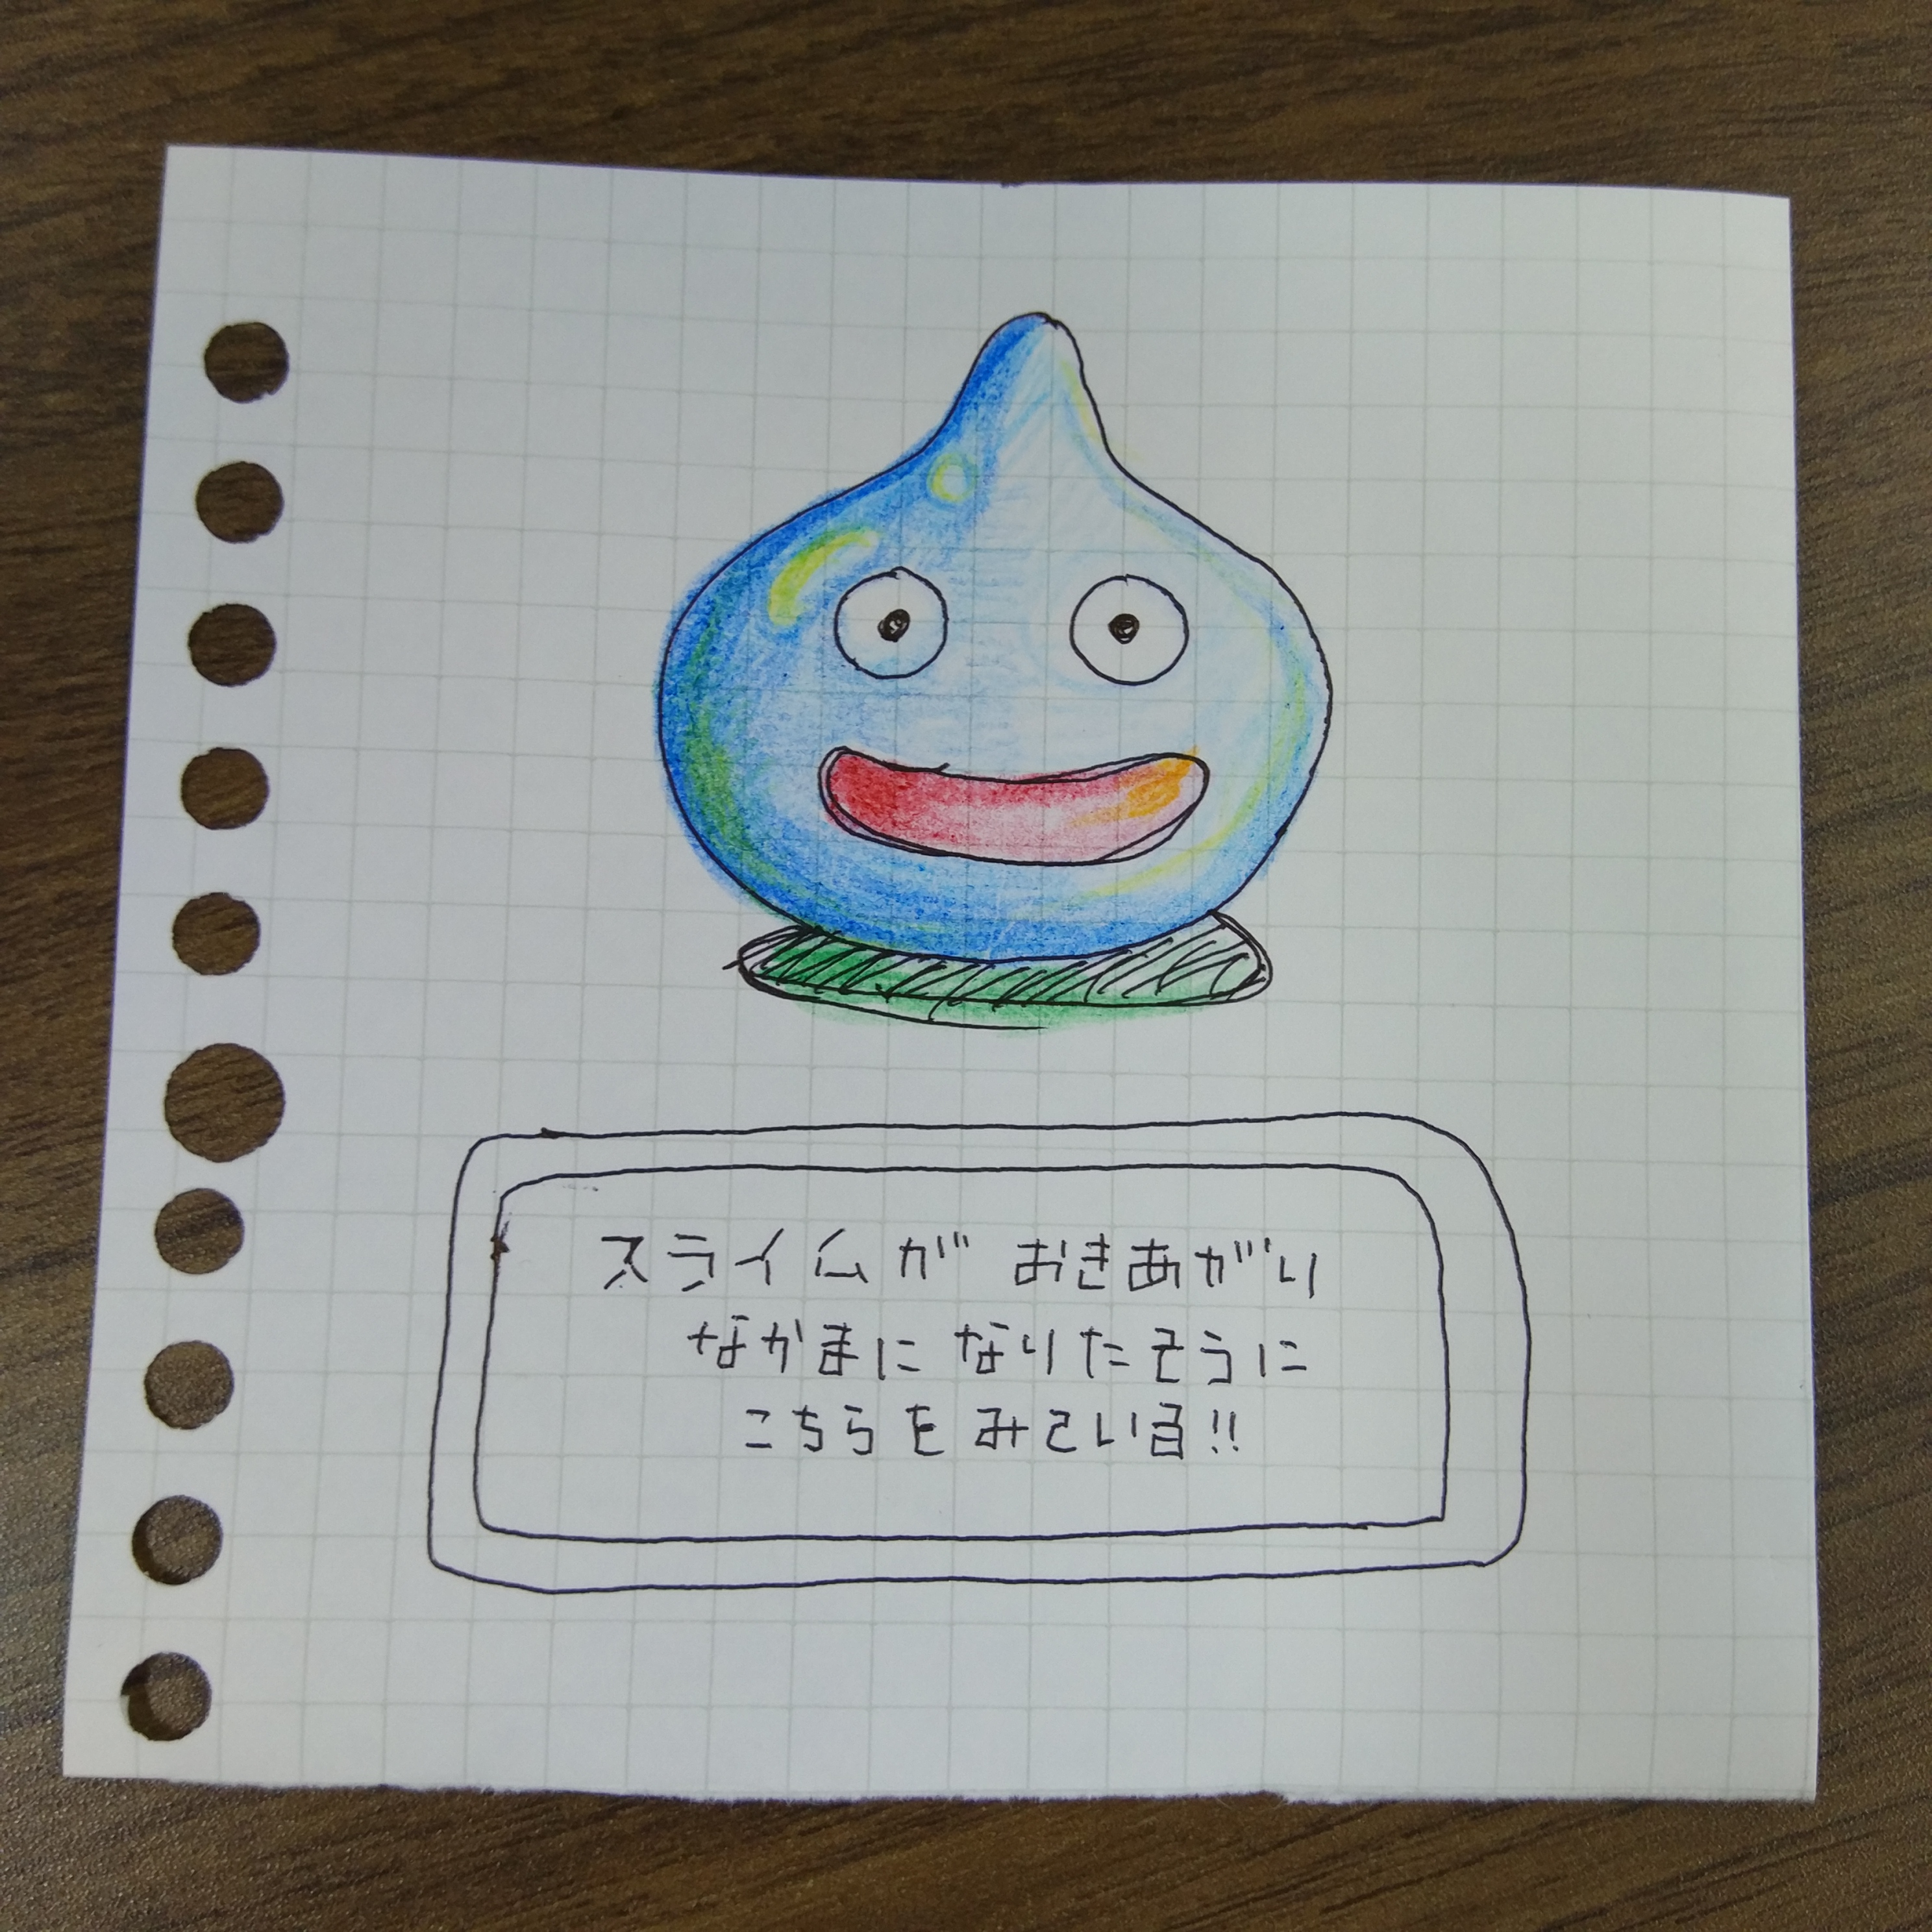 スライムが おきあがり
なかまに なりたそうに
こちらを みている!!